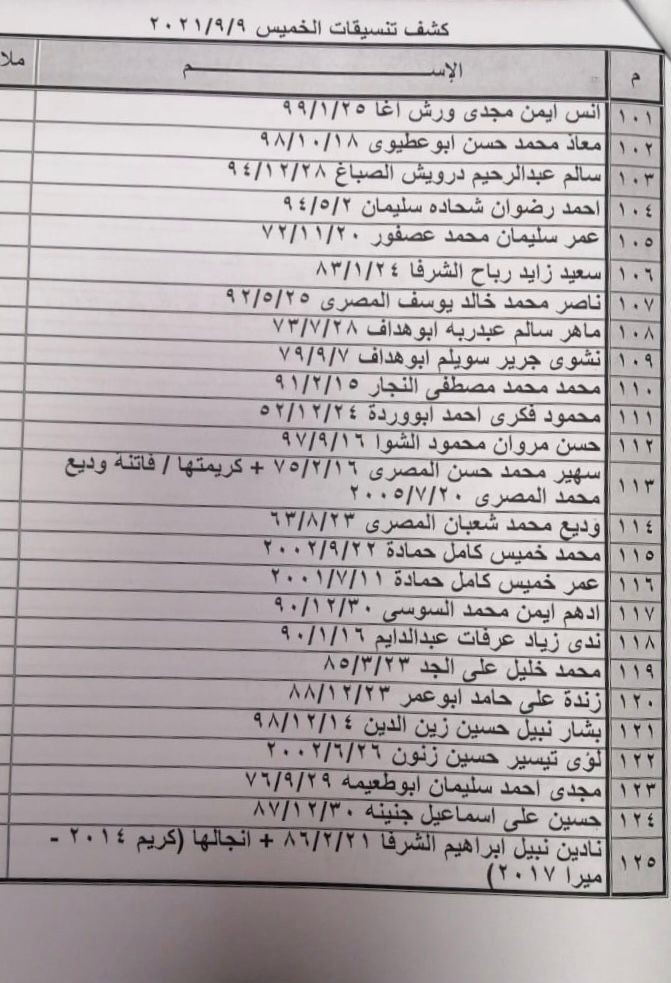 كشف تنسيقات الخميس ٢٠٢١/٩/٩
م الإســـــــــــــم ملا
١٠١ انس ايمن مجدى ورش اغا ٩٩/١/٢٥
١٠٢ معاذ محمد حسن ابوعطيوى ٩٨/١٠/١٨
١٠٣ سالم عبدالرحيم درويش الصباغ ٩٤/١٢/٢٨
١٠٤ احمد رضوان شحاده سليمان ٩٤/٥/٢
١٠٥ عمر سليمان محمد عصفور ٧٢/١١/٢٠
١٠٦ سعيد زايد رباح الشرفا ٨٣/١/٢٤
١٠٧ ناصر محمد خالد يوسف المصرى ٩٢/٥/٢٥
١٠٨ ماهر سالم عبدربه ابوهداف ٧٣/٧/٢٨
١٠٩ نشوى جرير سويلم ابوهداف ٧٩/٩/٧
١١٠ محمد محمد مصطفى النجار ٩١/٢/١٥
١١١ محمود فكرى احمد ابووردة ٥٢/١٢/٢٤
١١٢ حسن مروان محمود الشوا ٩٧/٩/١٦
١١٣ سهير محمد حسن المصرى ٧٥/٢/١٦ + كريمتها / فاتنة وديع
محمد المصرى ٢٠٠٥/٧/٢٠
١١٤ وديع محمد شعبان المصرى ٦٣/٨/٢٣
١١٥ محمد خميس كامل حمادة ٢٠٠٢/٩/٢٢
١١٦ عمر خميس كامل حمادة ٢٠٠١/٧/١١
١١٧ ادهم ايمن محمد السوسى ٩٠/١٢/٣٠
١١٨ ندى زياد عرفات عبدالدايم ٩٠/١/١٦
١١٩ محمد خليل على الجد ٨٥/٣/٢٣
١٢٠ زندة على حامد ابوعمر ٨٨/١٢/٢٣
١٢١ بشار نبيل حسين زين الدين ٩٨/١٢/١٤
١٢٢ لؤى تيسير حسين زنون ٢٠٠٢/٦/٢٦
١٢٣ مجدى احمد سليمان ابوطعيمه ٧٦/٩/٢٩
١٢٤ حسين على اسماعيل جنينه ٨٧/١٢/٣٠
١٢٥ نادين نبيل ابراهيم الشرفا ٨٦/٢/٢١ + انجالها (كريم ٢٠١٤ -
ميرا ٢٠١٧)